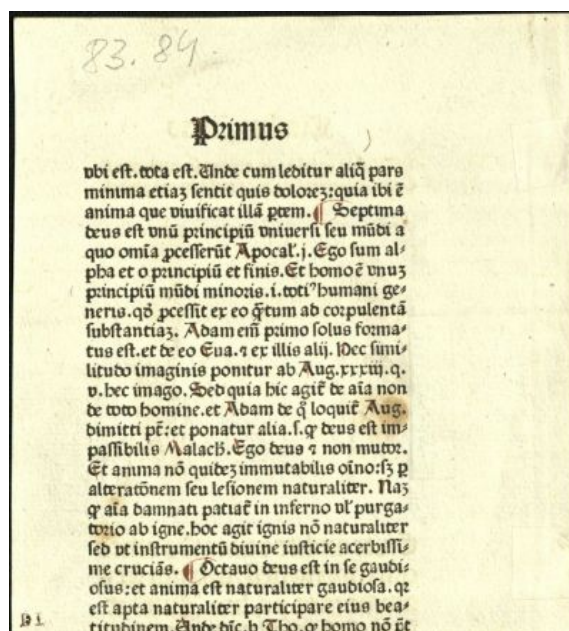 83. 84
Primus
vbi est. tota est. Unde cum leditur aliq̃ pars
minima etiaʒ sentit quis doloreʒ: quia ibi ẽ
anima que viuificat illã ꝑtem. ¶ Septima
deus est vnũ principiũ vniuersi seu mũdi a
quo omĩa ꝓcesserũt Apocal̛. j. Ego sum al⸗
pha et o principiũ et finis. Et homo ẽ vnuʒ
principiũ mũdi minoris. i. totiꝰ humani ge⸗
neris. qꝺ̃ ꝓcessit ex eo q̃tum ad corpulentã
substantiaʒ. Adam em̃ primo solus forma⸗
tus est. et de eo Eua. ⁊ ex illis alij. Hec simi⸗
litudo imaginis ponitur ab Aug. xxxiij. q.
v. hec imago. Sed quia hic agit̃ de aĩa non
de toto homine. et Adam de q̊ loquit̃ Aug.
dimitti põt: et ponatur alia. s. ꝙ deus est im⸗
passibilis Malach. Ego deus ⁊ non mutor.
Et anima nõ quideʒ immutabilis oĩno: sʒ ꝑ
alteratõnem seu lesionem naturaliter. Naʒ
ꝙ aĩa damnati patiat̃ in inferno vl̛ purga⸗
torio ab igne. hoc agit ignis nõ naturaliter
sed vt instrumentũ diuine iusticie acerbissi⸗
me cruciãs. ¶ Octauo deus est in se gaudi⸗
osus: et anima est naturaliter gaudiosa. qꝛ
est apta naturaliter participare eius bea⸗
titudinem. Unde dic̃. b. Tho. ꝙ homo nõ põt